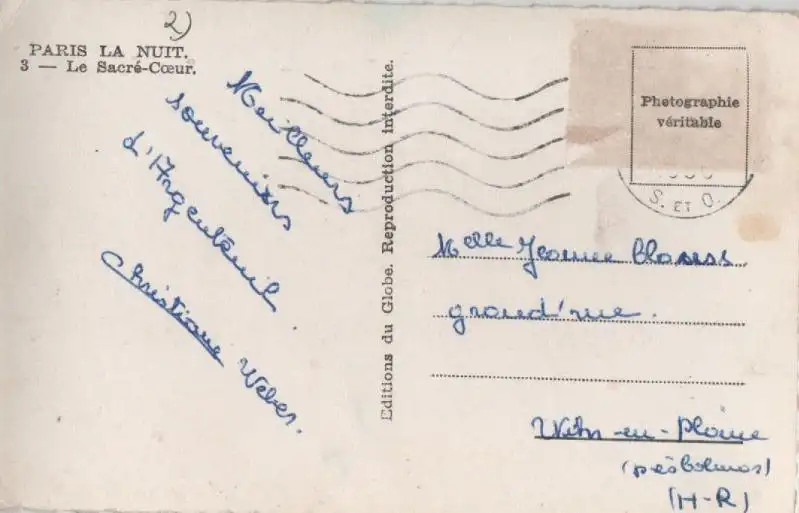 2)
PARIS LA NUIT.
3 — Le Sacré-Cœur.
Meilleurs
souvenirs
d'Argenteuil.
Christiane Weber.
Editions du Globe. Reproduction interdite.
Photographie
véritable
S. ET O.
Melle Jeanne
grand'rue.
Witt-en-Plaine
(près Colmar)
(H-R)